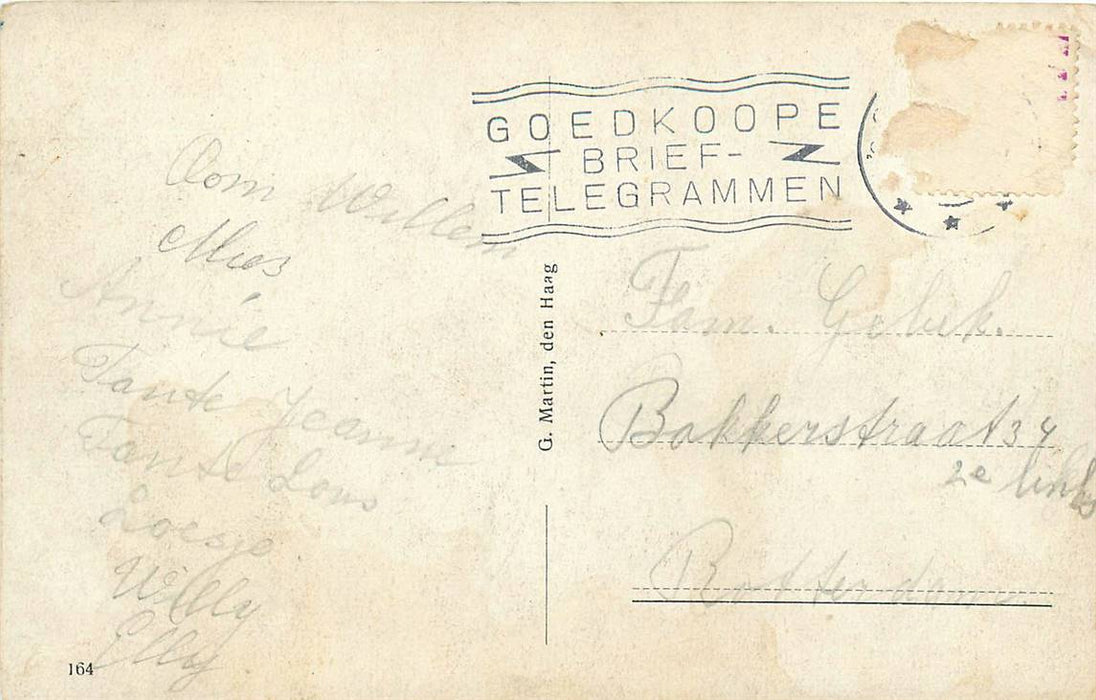 GOEDKOOPE
BRIEF-
TELEGRAMMEN
Oom Willem
Mies
Annie
Tante Jeanne
Tante Lous
Loesje
Willy
Elly
164
G. Martin, den Haag
Fam.
Bakkerstraat 34
2e links
Rotterdam.